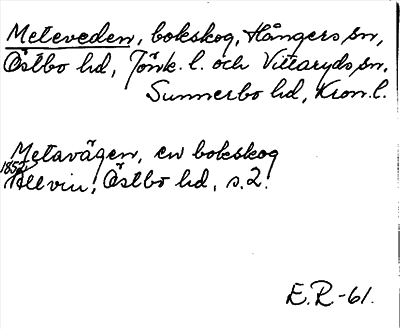 Meteveden, bokskog, Hångers sn,
Östbo hd, Jönk. l. och Vittaryds sn,
Sunnerbo hd, Kron. l.
Metavägen, en bokskog
1852
Allvin, Östbo hd, s. 2.
E.R-61.